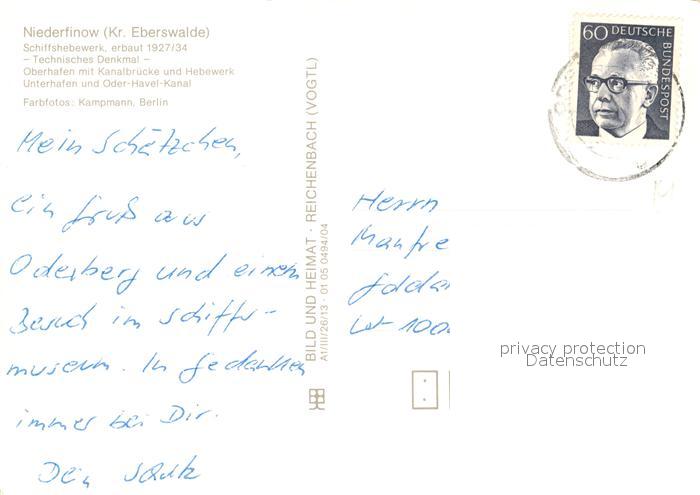 Niederfinow (Kr. Eberswalde)
Schiffshebewerk, erbaut 1927/34
– Technisches Denkmal –
Oberhafen mit Kanalbrücke und Hebewerk
Unterhafen und Oder-Havel-Kanal
Farbfotos: Kampmann, Berlin
Mein Schätzchen,
ein Gruß aus
Oderberg und einem
Besuch im Schiffs-
museum. In Gedanken
immer bei Dir.
Dein Schatz
BILD UND HEIMAT · REICHENBACH (VOGTL)
A1/III/26/13 · 01 05 0494/04
60 DEUTSCHE
BUNDESPOST
Herrn
Manfre
W-100
privacy protection
Datenschutz